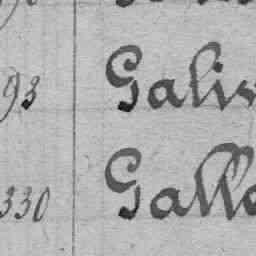 93 Galis
330 Galla